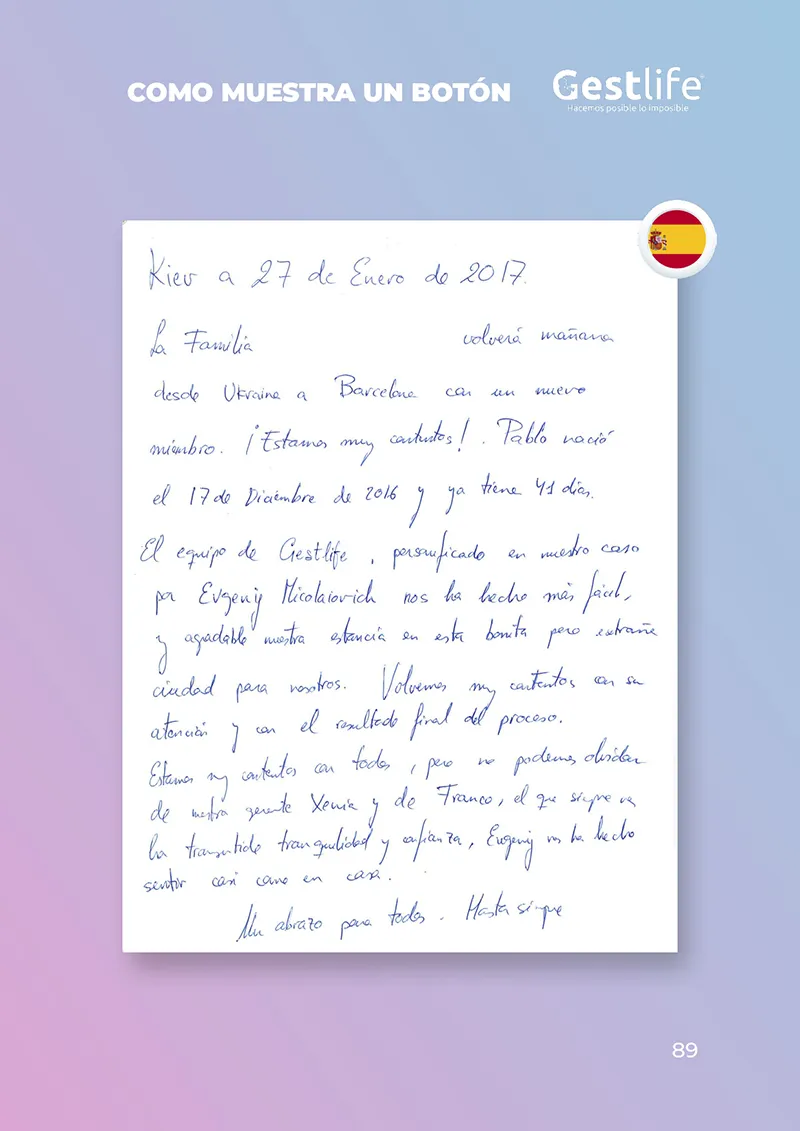 COMO MUESTRA UN BOTÓN
Gestlife
Hacemos posible lo imposible
Kiev a 27 de Enero de 2017.
La Familia volverá mañana
desde Ukraina a Barcelona con un nuevo
miembro. ¡Estamos muy contentos!. Pablo nació
el 17 de Diciembre de 2016 y ya tiene 41 días.
El equipo de Gestlife, personificado en nuestro caso
por Evgenij Micolaiovich nos ha hecho más fácil,
y agradable nuestra estancia en esta bonita pero extraña
ciudad para nosotros. Volvemos muy contentos con su
atención y con el resultado final del proceso.
Estamos muy contentos con todos, pero no podemos olvidar
de nuestra gerente Xenia y de Franco, el que siempre nos
ha transmitido tranquilidad y confianza, Evgenij nos ha hecho
sentir casi como en casa.
Un abrazo para todos. Hasta siempre
89